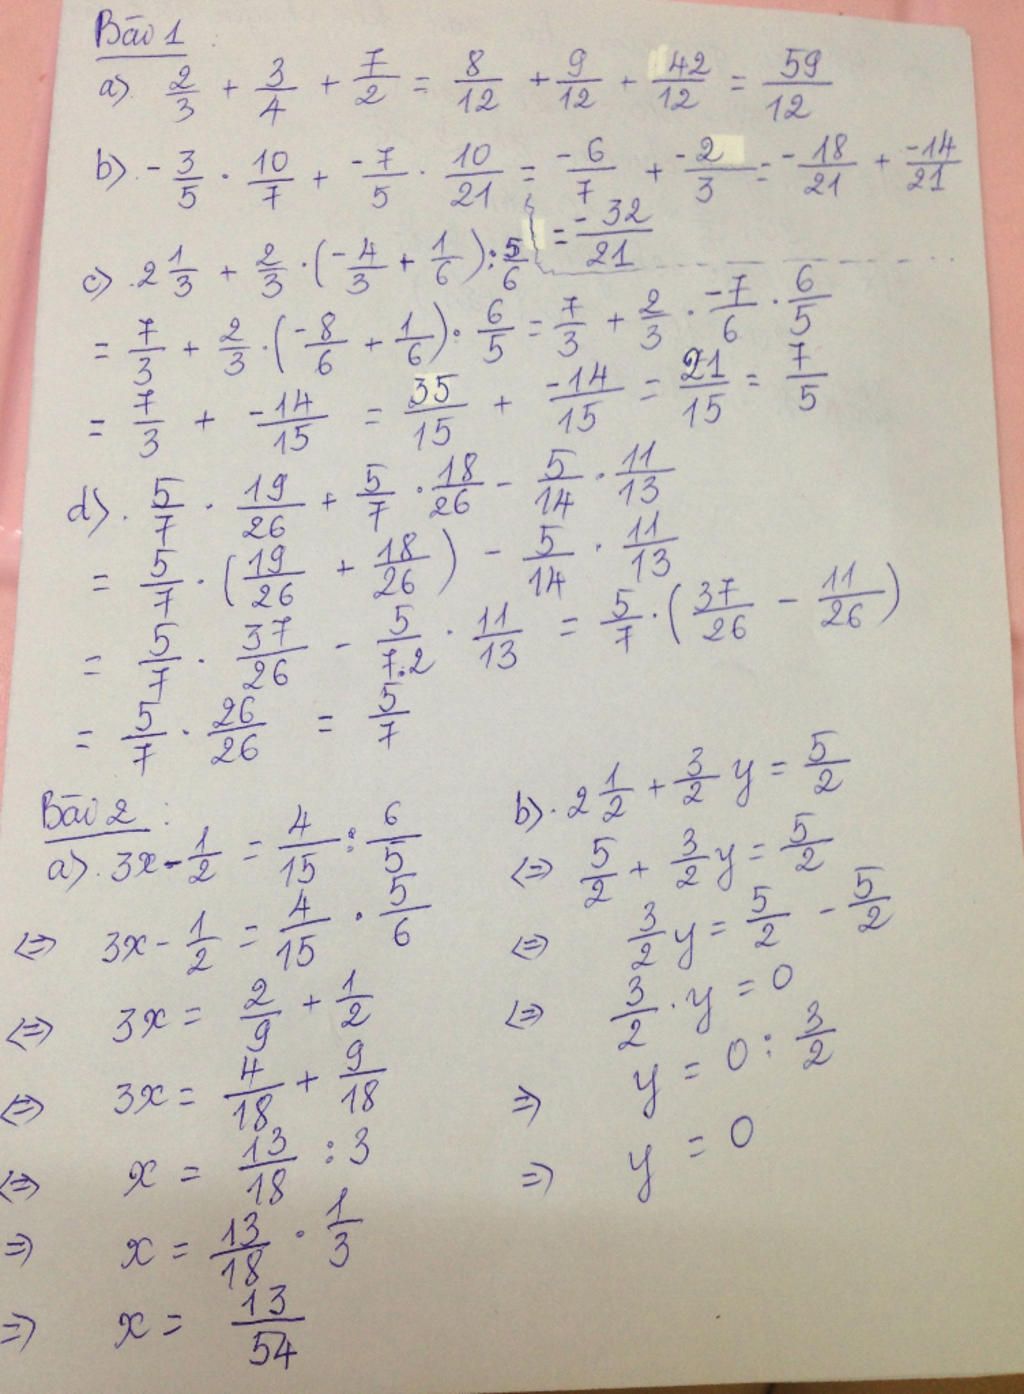 Bài 1 :
a) 2/3 + 3/4 + 7/2 = 8/12 + 9/12 + 42/12 = 59/12
b) -3/5 . 10/7 + -7/5 . 10/21 = -6/7 + -2/3 = -18/21 + -14/21
= -32/21
c) . 2 1/3 + 2/3 . (-4/3 + 1/6) : 5/6
= 7/3 + 2/3 . (-8/6 + 1/6) . 6/5 = 7/3 + 2/3 . -7/6 . 6/5
= 7/3 + -14/15 = 35/15 + -14/15 = 21/15 = 7/5
d) . 5/7 . 19/26 + 5/7 . 18/26 - 5/14 . 11/13
= 5/7 . (19/26 + 18/26) - 5/14 . 11/13
= 5/7 . 37/26 - 5/7.2 . 11/13 = 5/7 . (37/26 - 11/26)
= 5/7 . 26/26 = 5/7
Bài 2 :
a) . 3x - 1/2 = 4/15 : 6/5
<=> 3x - 1/2 = 4/15 . 5/6
<=> 3x = 2/9 + 1/2
<=> 3x = 4/18 + 9/18
<=> x = 13/18 : 3
=> x = 13/18 . 1/3
=> x = 13/54
b) . 2 1/2 + 3/2 y = 5/2
<=> 5/2 + 3/2 y = 5/2
<=> 3/2 y = 5/2 - 5/2
<=> 3/2 . y = 0
=> y = 0 : 3/2
=> y = 0